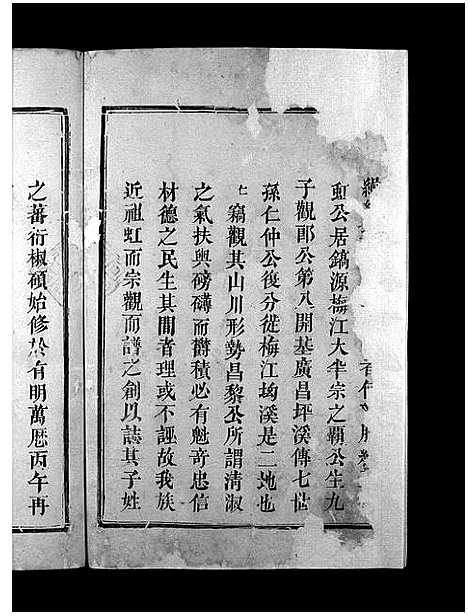 虹公居鎬源梅江大半宗之覇公生九
子觀郎公第八開基廣昌坪溪傳七世
孫仁仲公後分徙梅江坳溪是二地也
竊觀其山川形勢昌黎公所謂清淑
之氣扶輿磅礴而欝積必有魁竒忠信
材德之民生其間者理或不誣故我族
近祖虹而宗觀而譜之創以誌其子姓
之蕃衍椒碩始修於有明萬厯丙午再